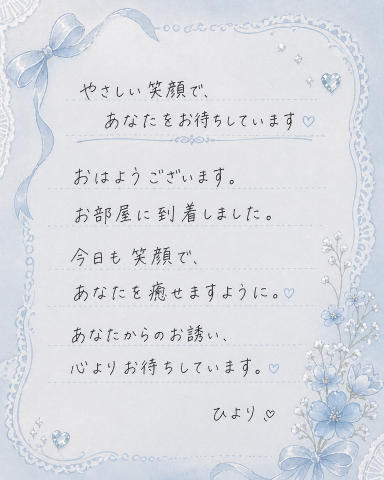 やさしい笑顔で、
あなたをお待ちしています♡
おはようございます。
お部屋に到着しました。
今日も笑顔で、
あなたを癒せますように。♡
あなたからのお誘い、
心よりお待ちしています。♡
ひより♡